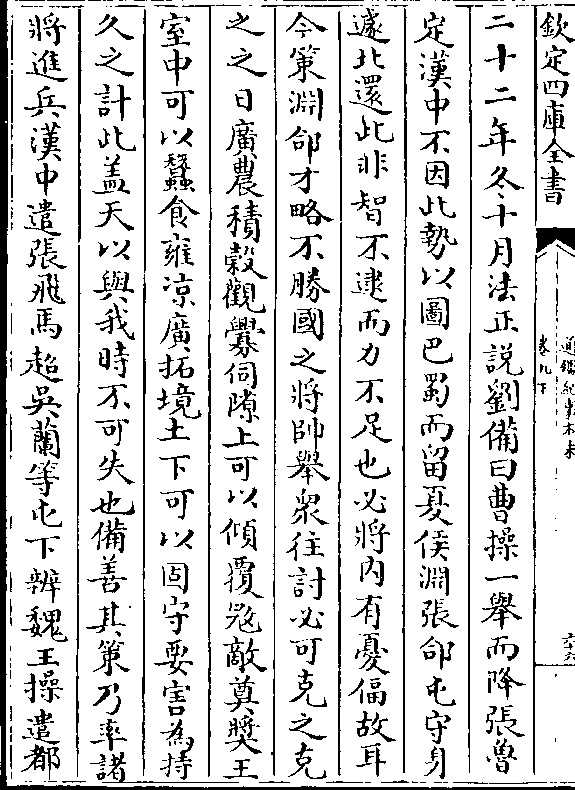 欽定四庫全書
通鑑紀事本末
卷九下
六十六
二十二年冬十月法正說劉備曰曹操一舉而降張魯
定漢中不因此勢以圖巴蜀而留夏侯淵張郃屯守身
遽北還此非智不逮而力不足也必將內有憂偪故耳
今策淵郃才略不勝國之將帥舉衆往討必可克之克
之之日廣農積穀觀釁伺隙上可以傾覆冦敵奠奬王
室中可以蠶食雍凉廣拓境土下可以固守要害為持
久之計此蓋天以與我時不可失也備善其策乃率諸
將進兵漢中遣張飛馬超吳蘭等屯下辨魏王操遣都